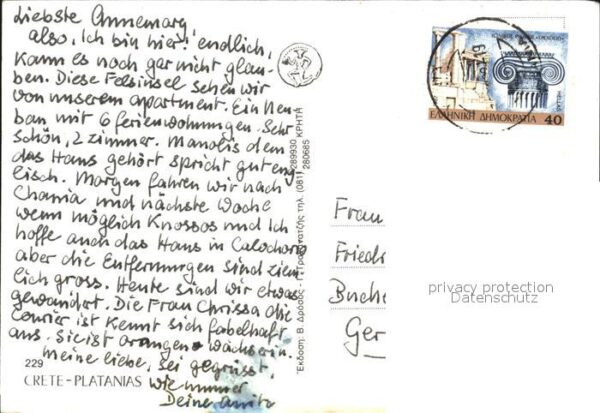 Liebste Annemarg
also, Ich bin hier! endlich,
kann es noch gar nicht glau-
ben. Diese Felsinsel sehen wir
von unserem apartment. Ein Neu-
bau mit 6 ferienwohnungen. Sehr
schön, 2 zimmer. Manolis dem
das Haus gehört spricht gut eng
lisch. Morgen fahren wir nach
Chania und nächste Woche
wenn möglich Knossos und Ich
hoffe auch das Haus in Calochorio
aber die Entfernungen sind ziem
lich gross. Heute sind wir etwas
gewandert. Die Frau Chrissa die
Courier ist kennt sich fabelhaft
aus. Sie ist orangen-wächserin.
Meine liebe, sei gegrüsst,
wie immer
Deine
229
CRETE - PLATANIAS
Έκδοση: Β. Δρόσος - Γ. τηλ. (081) 289930 ΚΡΗΤΗ
280685
ΕΛΛΗΝΙΚΗ ΔΗΜΟΚΡΑΤΙΑ 40
Frau
Friedr
Buche
Ger
privacy protection
Datenschutz